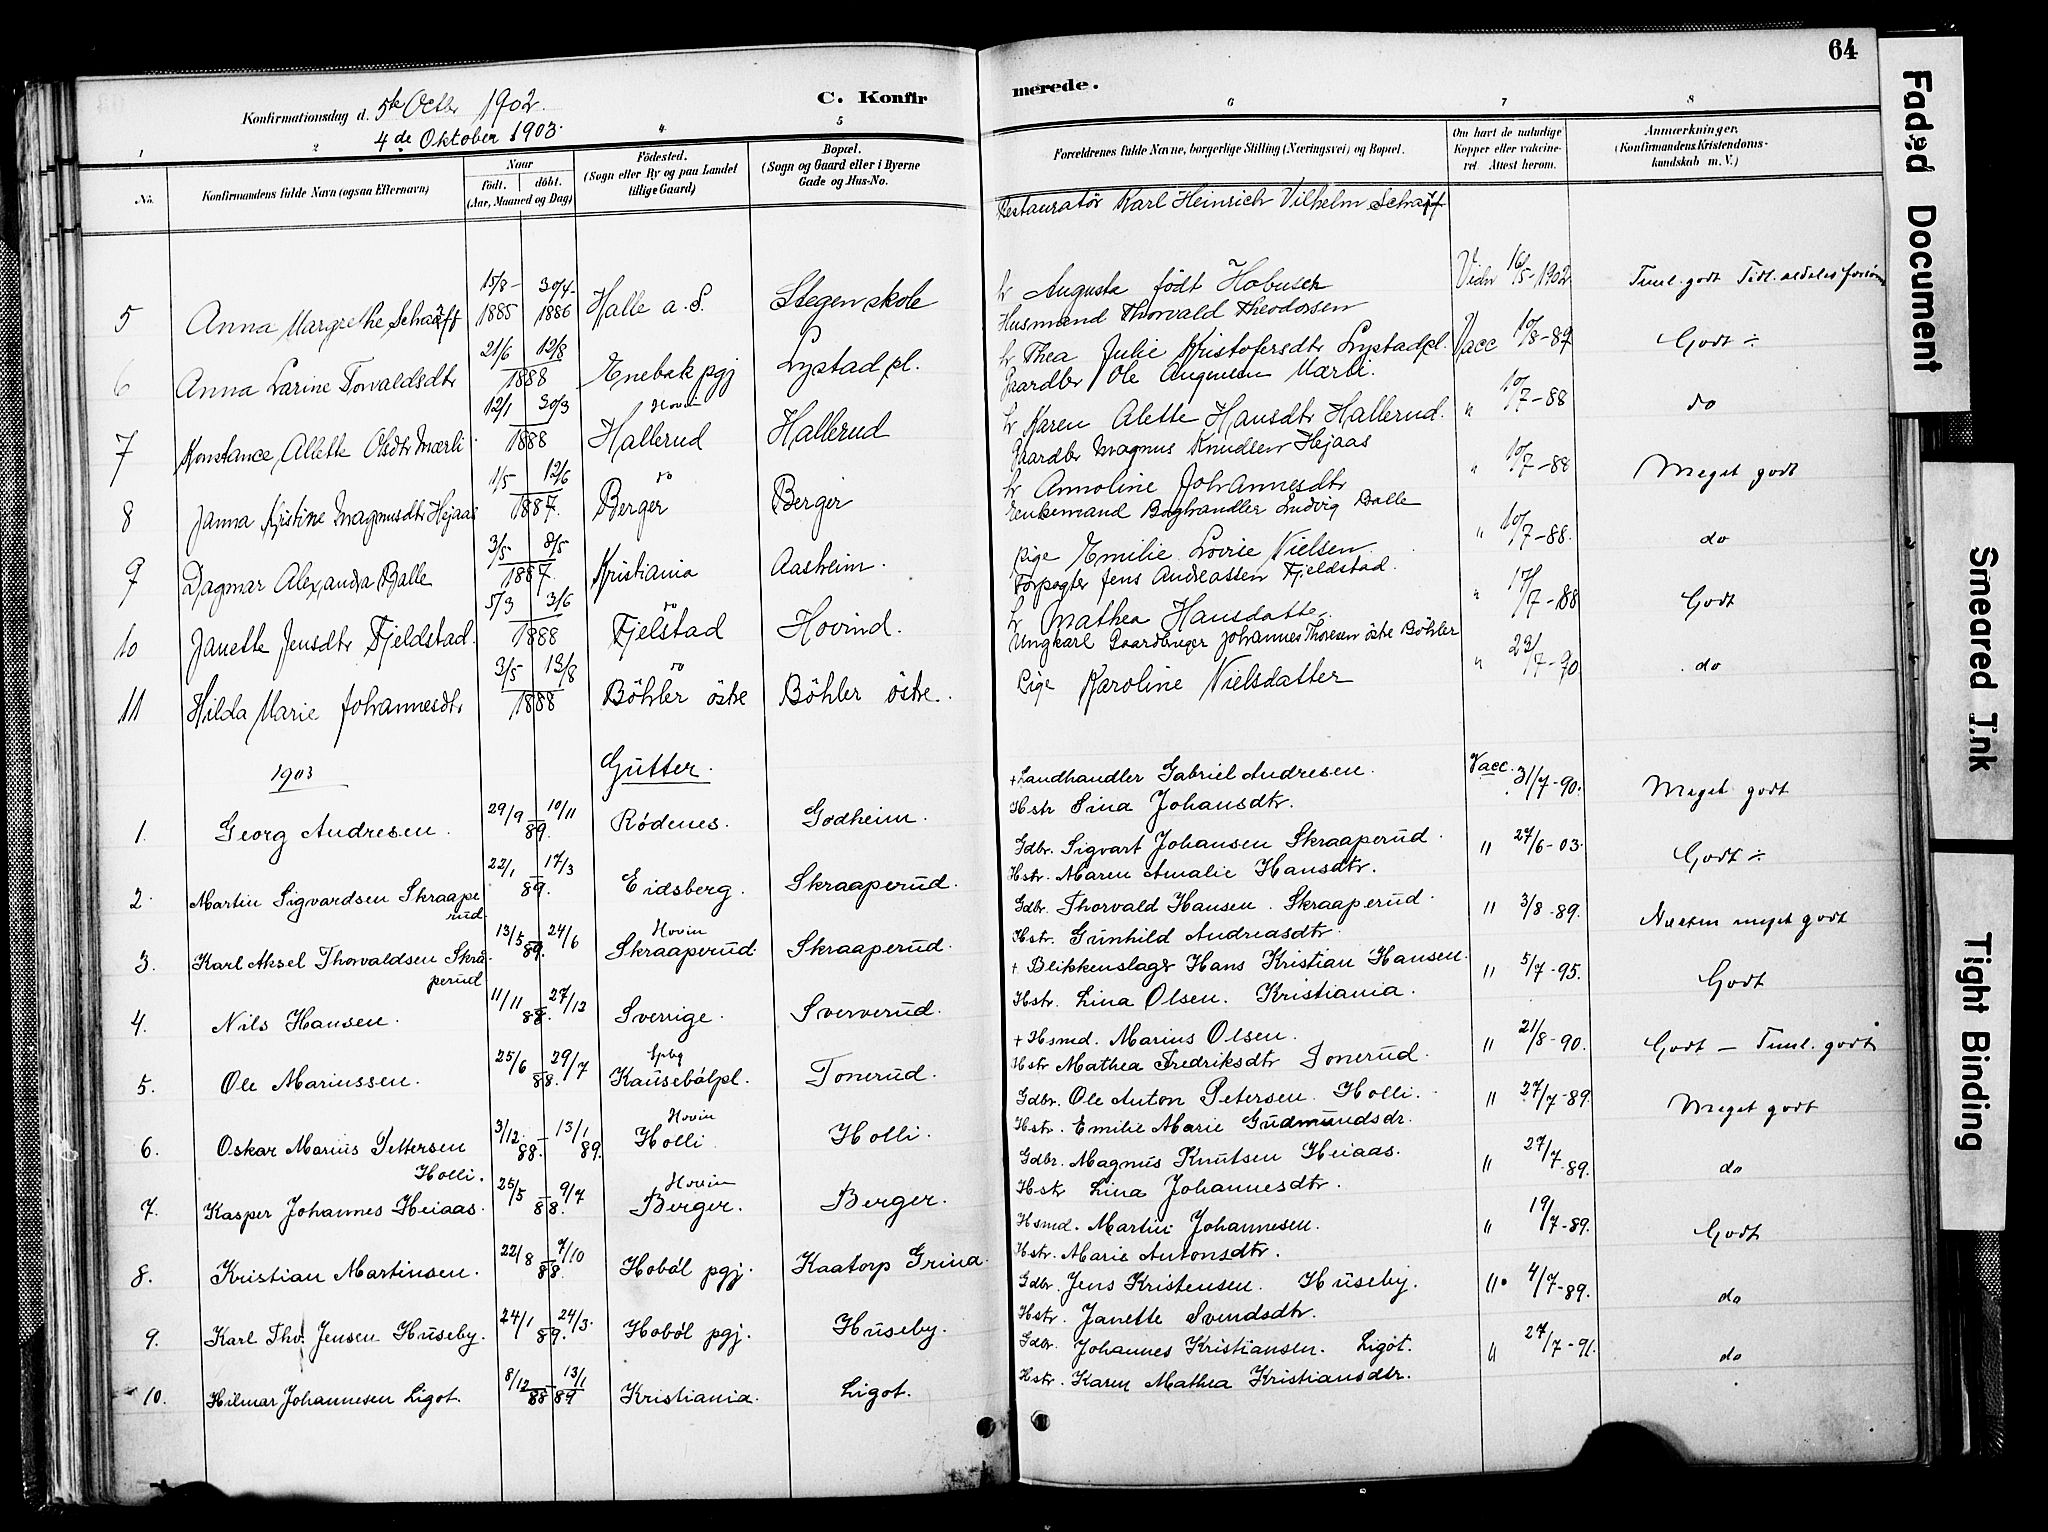 64
Konfirmationsdag d. 5te Octbr 1902.
4de Oktober 1903.
C. Konfirmerede.
1 2 4. 5 6 7 8
No.
Konfirmandens fulde Navn (ogsaa Efternavn)
Naar
født. døbt.
(Aar, Maaned og Dag)
Fødested.
(Sogn eller By og paa Landet
tillige Gaard)
Bopæl.
(Sogn og Gaard eller i Byerne
Gade og Hus-No.
Forældrenes fulde Navne, borgerlige Stilling (Næringsvei) og Bopæl.
Om havt de naturlige
Kopper eller vakcine-
ret Attest herom.
Anmærkninger.
(Konfirmandens Kristendoms-
kundskab m. V.)
Restauratör Karl Heinrich Vilhelm Scharff
5 Anna Margrethe Scharff 15/8-1885 30/4-1886 Halle a. S. Stegen skole
hr Augusta födt Hobusch Vidn 16/5-1902 Tml. godt Tidl. aldeles forsömt
Husmand Thorvald Theodorsen
6 Anna Larine Torvaldsdtr 21/6 12/8 1888 Enebak pgj Lystad pl.
hr Thea Julie Kristofersdtr Lystadpl. Vacc 10/8-87 Godt ÷
Gaardbr Ole Augensen Mærli.
7 Konstance Allette Olsdtr Mærli 12/1 30/3 1888 Hovin Hallerud Hallerud
hr Karen Alette Hansdtr Hallerud. " 10/7-88 do
Gaardbr Magnus Knudsen Hejaas
8 Janna Kristine Magnusdtr Hejaas 1/5 12/6 1887. do Berger Berger
hr Annoline Johannesdtr " 10/7-88 Meget godt
Enkemand Boghandler Ludvig Balle
9 Dagmar Alexandra Balle 3/5 8/5 1887. Kristiania Aasheim.
Pige Emilie Lovise Nielsen " 10/7-88. do
Forpagter Jens Andreassen Fjeldstad.
10 Janette Jensdtr Fjeldstad. 5/3 3/6 1888 do Fjelstad Hovind.
hr Mathea Hansdatter " 17/7-88 Godt
Ungkarl Gaardbruger Johannes Thoresen östre Böhler
11 Hilda Marie Johannesdtr 3/5 13/8 1888 do Böhler östre Böhler östre.
Pige Karoline Nielsdatter " 23/7-90 do
1903 Gutter.
+ Landhandler Gabriel Andresen. Vacc.
1. Georg Andresen. 29/9 10/11 89. Rödenes. Godheim.
Hstr Lina Johansdtr. 31/7-90. Meget godt
Gdbr. Sigvart Johansen Skraaperud.
2. Martin Sigvardsen Skraape
rud. 22/1 17/3 89. Eidsberg. Skraaperud.
Hstr. Maren Amalie Hansdtr. " 27/6-03. Godt ÷
Gdbr. Thorvald Hansen. Skraaperud.
3. Karl Aksel Thorvaldsen Skra-
perud 13/5 24/6 89. Hovin Skraaperud Skraaperud.
Hstr. Gunhild Andreasdtr. " 3/8-89. Næsten meget godt
+ Blikkenslager Hans Kristian Hansen.
4. Nils Hansen. 11/11 27/12 88. Sverrige. Sververud.
Hstr. Lina Olsen. Kristiania. " 5/7-95. Godt
+ Hsmd. Marius Olsen.
5. Ole Mariussen. 25/6 29/7 88. Spbg Kausebölpl. Tonerud.
Hstr Mathea Fredriksdtr Tonerud. " 21/8-90. Godt – Tml. godt
Gdbr. Ole Anton Petersen Holli.
6. Oskar Marius Pettersen
Holli. 3/12 88. – 13/1 89. Hovin Holli. Holli.
Hstr. Emilie Marie Gudmundsdr. " 27/7-89. Meget godt
Gdbr. Magnus Knutsen Heiaas.
7. Kasper Johannes Heiaas. 25/5 9/7 88. Hovin Berger. Berger.
Hstr Lina Johannesdtr. " 27/7-89. do
Hsmd. Martin Johannesen.
8. Kristian Martinsen. 22/8 7/10 88. Hoböl pgj. Kaatorp Grina.
Hstr. Marie Antonsdtr. " 19/7-89. Godt
Gdbr. Jens Kristensen. Huseby.
9. Karl Thv. Jensen Huseby. 24/1 24/3. 89. Hoböl pgj. Huseby.
Hstr. Janette Svendsdtr. " 4/7-89. do
Gdbr. Johannes Kristiansen. Ligot.
10. Hilmar Johannesen Ligot. 8/12 88 – 13/1 89 Kristiania. Ligot.
Hstr. Karen Mathea Kristiansdtr. " 27/7-91. do
Faded Document
Smeared Ink
Tight Binding